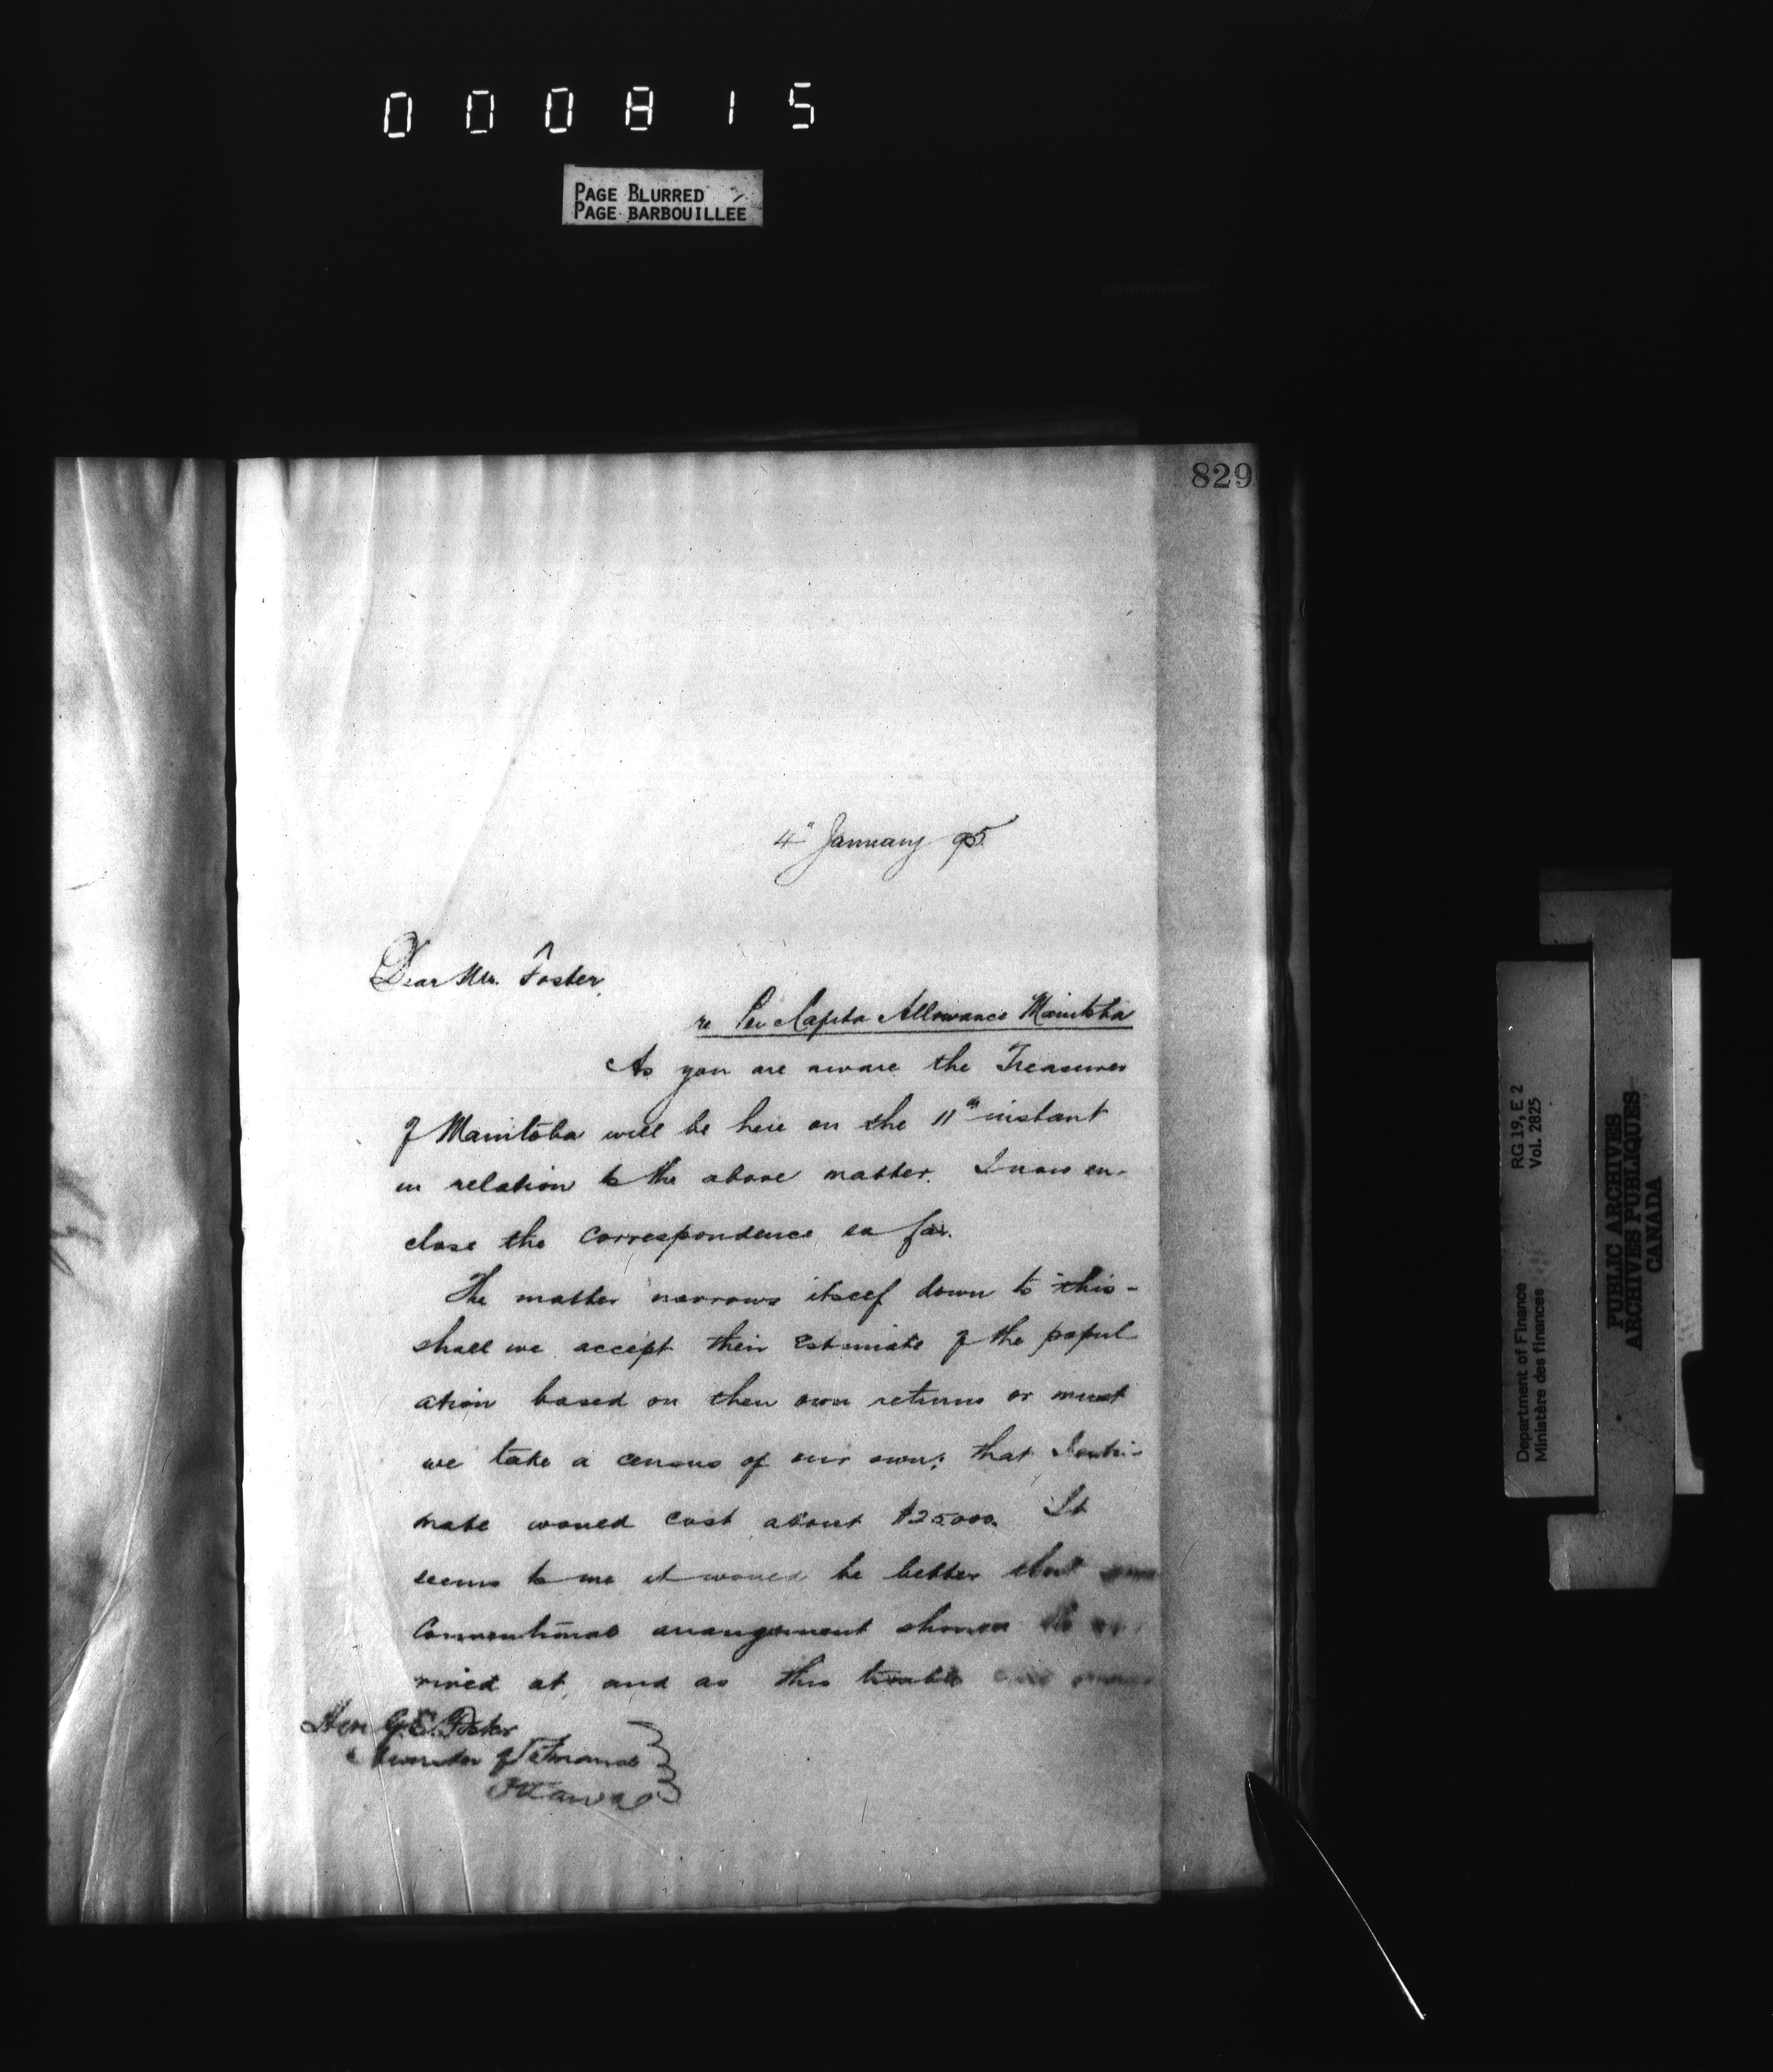 000815
PAGE BLURRED
PAGE BARBOUILLÉE
829
4" January 95
Dear Mr. Foster,
re Per Capita Allowance Manitoba
As you are aware the Treasurer
of Manitoba will be here on the 11th instant
in relation to the above matter. I now en-
close the correspondence so far.
The matter narrows itself down to this -
shall we accept their Estimate of the popul-
ation based on their own returns or must
we take a census of our own; that I esti-
mate would cost about $25000. It
seems to me it would be better that
Conventional arrangement should be
rived at, and as this trouble
Hon G.E. Foster
Minister of Finance
Ottawa
RG 19, E 2
Vol. 2825
Department of Finance
Ministère des finances
PUBLIC ARCHIVES
ARCHIVES PUBLIQUES
CANADA